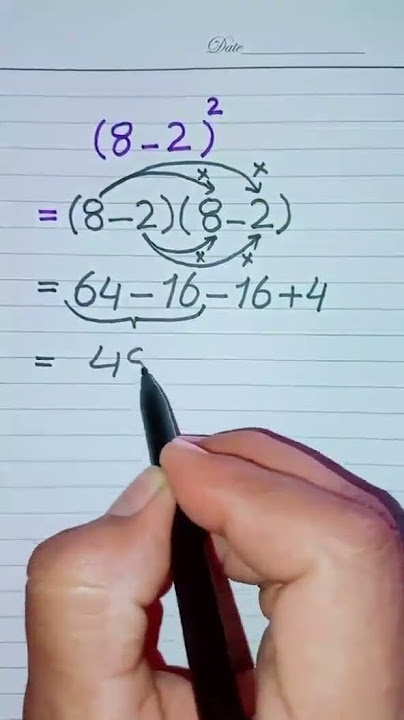 Date
(8-2)²
=(8-2)(8-2)
= 64-16-16+4
= 4